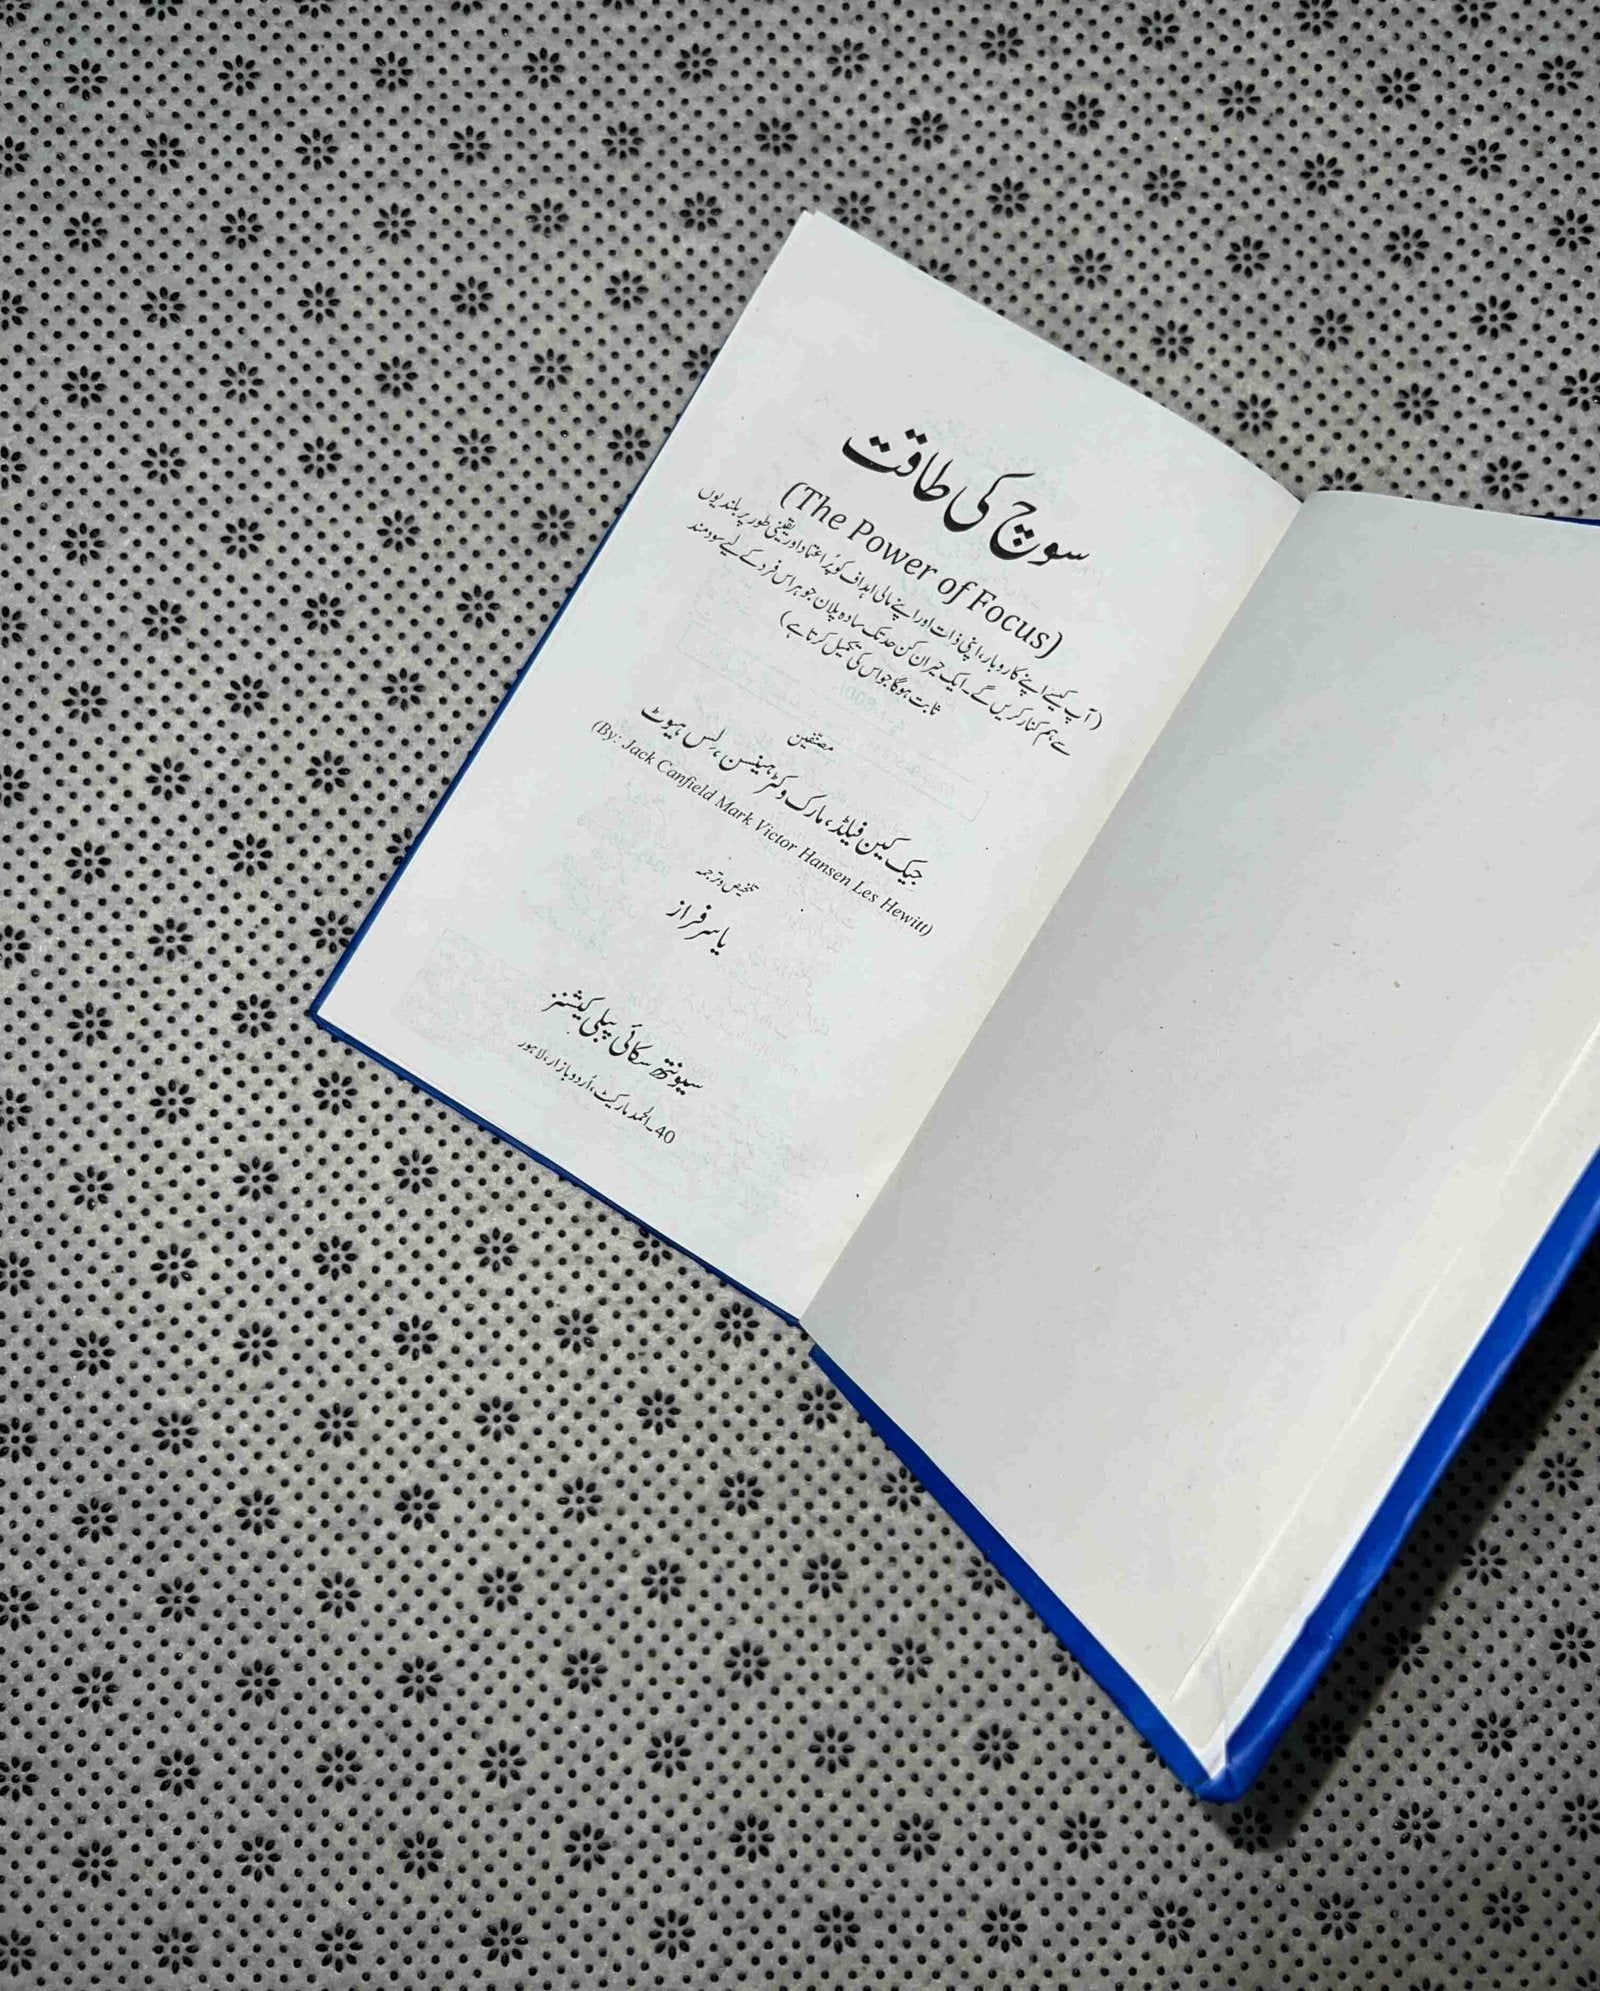 سوچ کی طاقت
(The Power of Focus)
(آپ کیسے اپنے کاروبار، اپنی ذات اور اپنے مالی اہداف کو پُر اعتماد اور یقینی طور پر بلندیوں
سے ہم کنار کریں گے۔ ایک حیران کن حد تک سادہ پلان جو ہر اس فرد کے لیے سودمند
ثابت ہوگا جو اس کی تکمیل کرتا ہے)
مصنفین
جیک کین فیلڈ، مارک وکٹر ہینسن، لس ہیوٹ
(By: Jack Canfield Mark Victor Hansen Les Hewitt)
تلخیص و ترجمہ
یاسر فراز
سیونتھ سکائی پبلی کیشنز
40۔الحمد مارکیٹ، اُردو بازار، لاہور